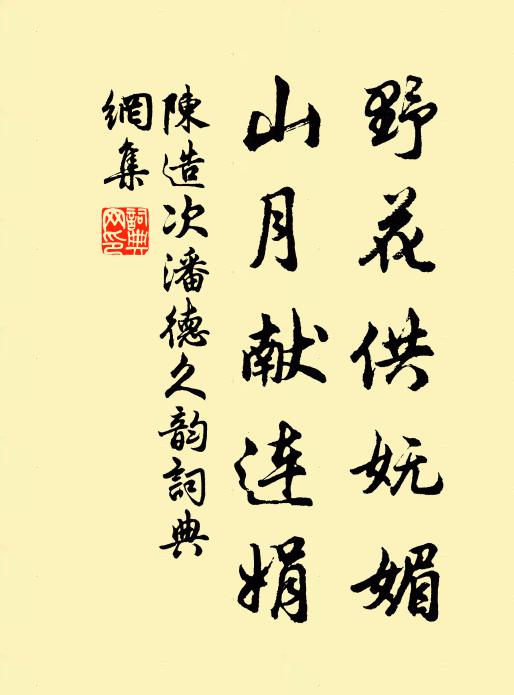 野花供妩媚
山月献连娟
陳造次潘德久韵詞典
網集
詞典
网印